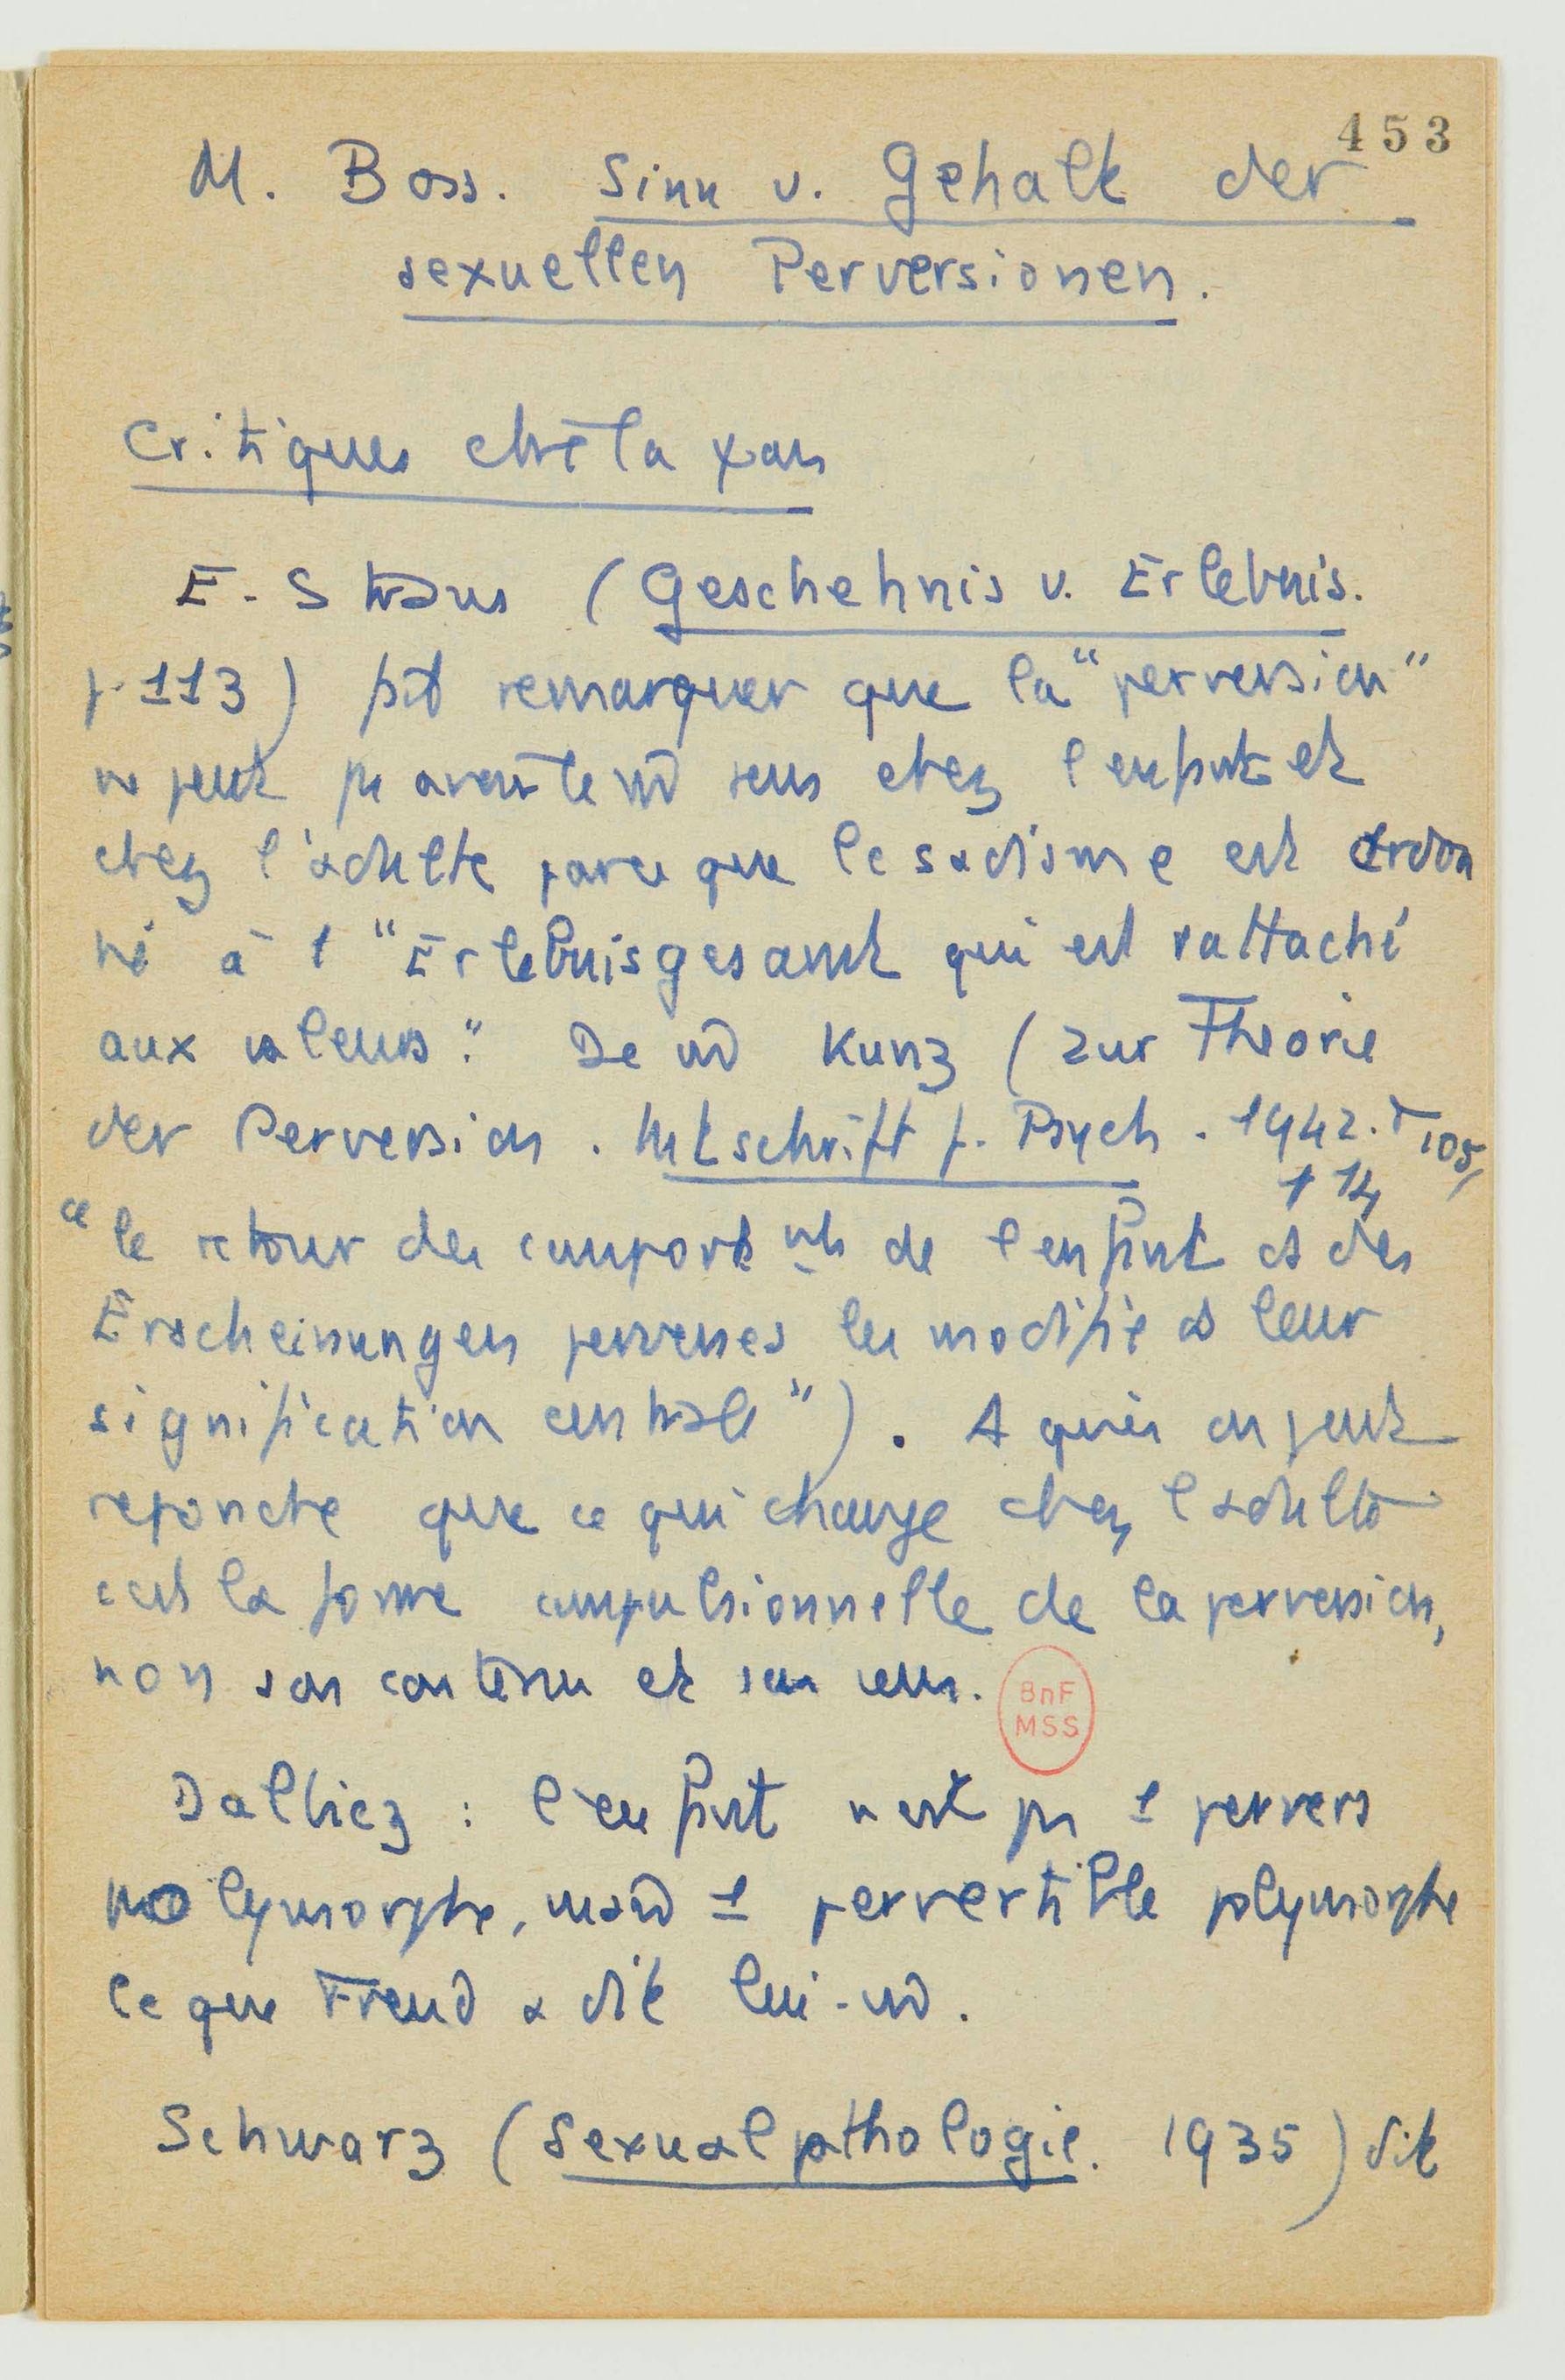 453
M. Boss. Sinn u. Gehalt der
sexuellen Perversionen.
Critiques ctre la ψan
E. Straus (Geschehnis u. Erlebnis.
p. 113) fait remarquer que la "perversion"
ne peut pas avoir le m̂ sens chez l'enfant et
chez l'adulte parce que le sadisme est ordon
né à l "Erlebnisgesamt qui est rattaché
aux valeurs." De m̂ Kunz (Zur Theorie
der Perversion. Mtschrift f. Psych. 1942. p 105,
114
"le retour des comportmts de l'enfant ds des
Erscheinungen perverses les modifie ds leur
signification centrale"). A quoi on peut
répondre que ce qui change chez l'adulte
c'est la forme compulsionnelle de la perversion,
non son contenu et son sens.
BnF
MSS
Dalbiez : l'enfant n'est pas 1 pervers
polymorphe, mais 1 pervertible polymorphe
ce que Freud a dit lui-m̂.
Schwarz (Sexualpathologie. 1935) dit